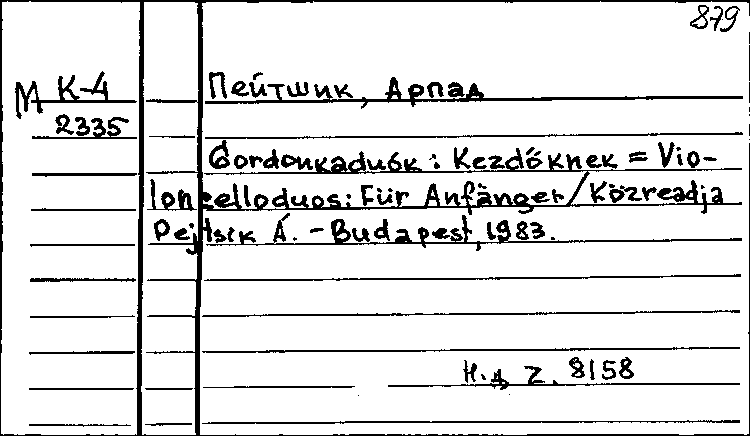 879
М К-4
2335
Пейтшик, Арпад
Gordonkaduók : Kezdőknek = Vio-
loncelloduos: Für Anfänger / Közreadja
Pejtsik Á. - Budapest, 1983.
Н.д. Z. 8158